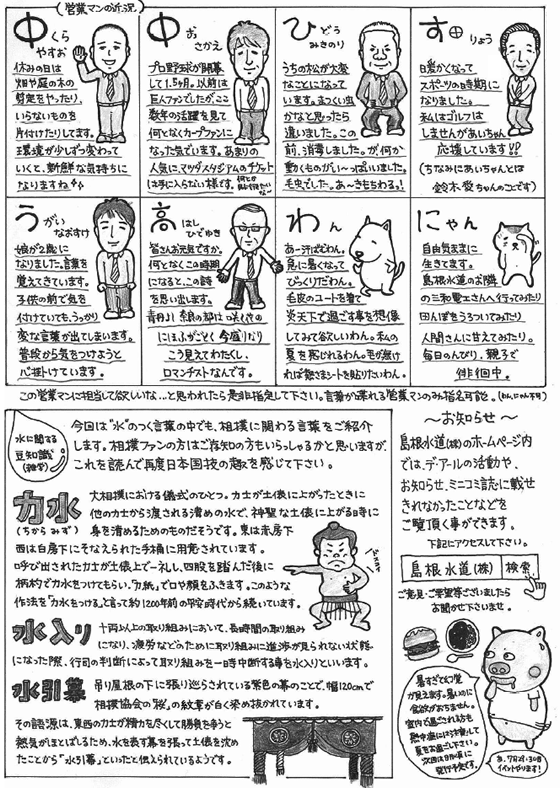 (営業マンの近況)
中くら やすお
休みの日は
畑や庭の木の
剪定をやったり、
いらないものを
片付けたりします。
環境が少しずつ変わって
いくと、新鮮な気持ちに
なりますね
中お さかえ
プロ野球が開幕
して1.5ヶ月。以前は
巨人ファンでしたが、ここ
数年の活躍を見て
何となくカープファンに
なった気でいます。あまりの
人気に、マツダスタジアムのチケット
は手に入らない様です。
ひどう みきのり
うちの松が大変
なことになって
います。まつくい虫
かなと思ったら
違いました。この
前、消毒しました。が、何か
動くものがい〜っぱいいました。
毛虫でした。あ〜きもちわるっ!
す田 りょう
日暖かくなって
スポーツの時期に
なりました。
私はゴルフは
しませんがあいちゃん
応援しています!!
(ちなみにあいちゃんとは
鈴木愛ちゃんのことです)
うがい なおすけ
娘が2歳に
なりました。言葉を
覚えてきています。
子供の前で気を
付けていても、うっかり
変な言葉が出てしまいます。
普段から気をつけようと
心掛けています。
高はし ひでゆき
皆さんお元気ですか。
何となくこの時期
になると、この詩
を思い出します。
青丹よし 奈良の都は 咲く花の
にほふがごとく 今盛りなり
こう見えてわたくし、
ロマンチストなんです。
わん
あー汗ばむわん。
急に暑くなって
びっくりだわん。
毛皮のコートを着て
炎天下で過ごす事を想像
してみて欲しいわん。私の
夏を感じれるわん。毛が無け
れば熱さまシートを貼りたいわん。
にゃん
自由気ままに
生きてます。
島根水道のお隣
の三和電工さんへ行ってみたり
田んぼをうろついてみたり
人間さんに甘えてみたり。
毎日のんびり、親子で
徘徊中。
この営業マンに担当して欲しいな…と思われたら是非指名して下さい。言葉が喋れる営業マンのみ指名可能。(わん,にゃん不可)
水に関する
豆知識
(雑学)
今回は“水”のつく言葉の中でも、相撲に関わる言葉をご紹介
します。相撲ファンの方はご存知の方もいらっしゃるかと思いますが、
これを読んで再度日本国技の趣を感じて下さい。
力水
(ちからみず)
大相撲における儀式のひとつ。力士が土俵に上がったときに
他の力士から渡される清めの水で、神聖な土俵に上がる時に
身を清めるためのものだそうです。東は赤房下
西は白房下にそなえられた手桶に用意されています。
呼び出された力士が土俵上で一礼し、四股を踏んだ後に
柄杓で力水をつけてもらい、“力紙”で口や顔をふきます。このような
作法を「力水をつける」と言って約1200年前の平安時代から続いています。
水入り
十両以上の取り組みにおいて、長時間の取り組み
になり、疲労などのために取り組みに進歩が見られない状態
になった際、行司の判断によって取り組みを一時中断する事を水入りといいます。
水引幕
吊り屋根の下に張り巡らされている紫色の幕のことで、幅120cmで
相撲協会の「桜」の紋章が白く染め抜かれています。
その語源は、東西の力士が精力を尽くして勝負を争うと
熱気がほとばしるため、水を表す幕を張って土俵を沈め
たことから「水引幕」といったと伝えられているようです。
〜お知らせ〜
島根水道(株)のホームページ内
では、デ・アールの活動や、
お知らせ、ミニコミ誌に載せ
きれなかったことなどを
ご覧頂く事ができます。
下記にアクセスして下さい。
島根水道(株) 検索
ご意見・ご要望等ございましたら
お聞かせ下さいませ。
暑すぎて幻覚
が見えます。暑いのに
食欲がおちません。
室内で過ごされる方も
熱中症には注意して
夏をお過ごし下さい。
次回は9月頃に
発行予定です。
あ、7月29・30日
イベントやります!